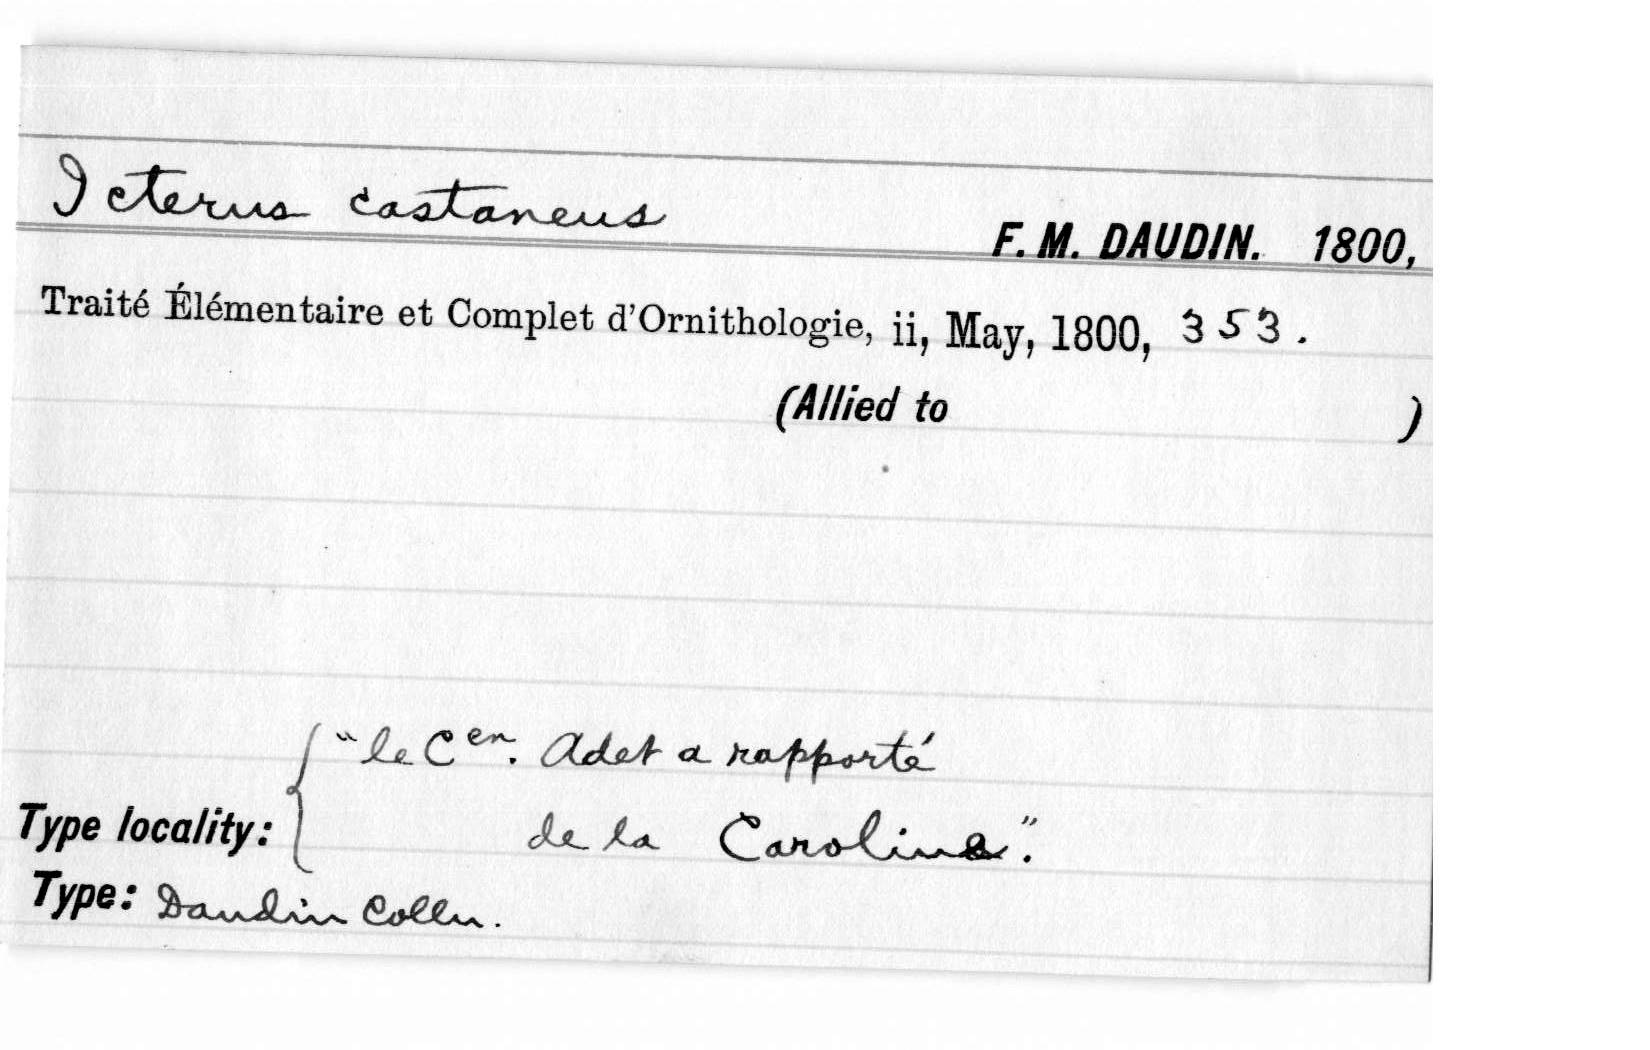 Icterus castaneus
F. M. DAUDIN. 1800,
Traité Élémentaire et Complet d'Ornithologie, ii, May, 1800, 353.
(Allied to )
"le Cen. Adet a rapporté
de la Caroline".
Type locality:
Type: Daudin Colln.